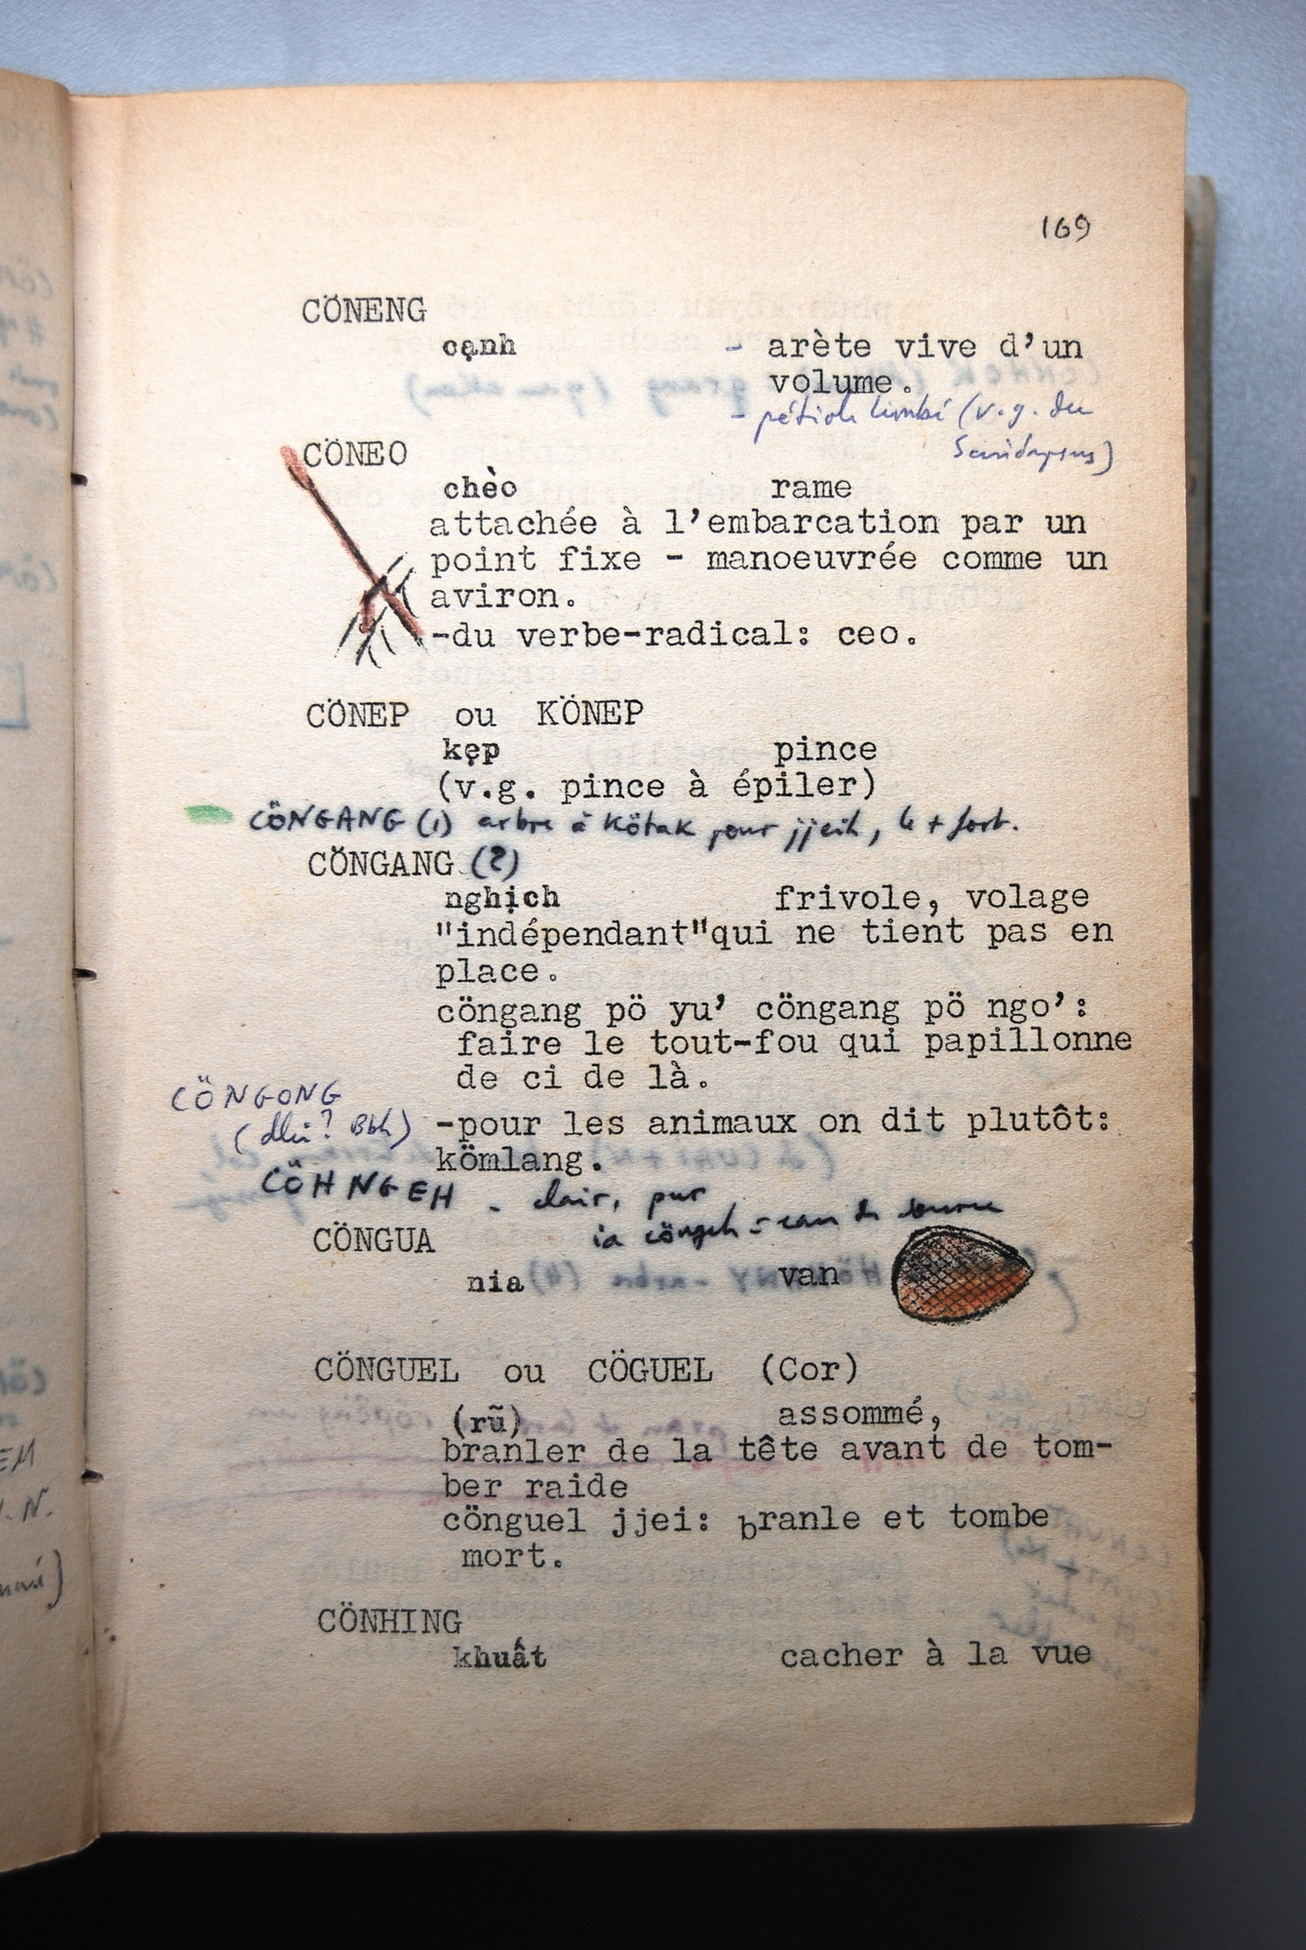 169
CÖNENG
cạnh - arète vive d'un
volume.
- pétiole limbé (v.g. du
Scindapsus)
CÖNEO
chèo rame
attachée à l'embarcation par un
point fixe - manoeuvrée comme un
aviron.
-du verbe-radical: ceo.
CÖNEP ou KÖNEP
kẹp pince
(v.g. pince à épiler)
CÖNGANG (1) arbre à Kötak pour jjeih, le + fort.
CÖNGANG (2)
nghịch frivole, volage
"indépendant"qui ne tient pas en
place.
cöngang pö yu' cöngang pö ngo':
faire le tout-fou qui papillonne
de ci de là.
CÖNGONG
( ? Bbh)
-pour les animaux on dit plutôt:
kömlang.
CÖHNGEH - clair, pur
ia cöngeh = eau de source
CÖNGUA
nia van
CÖNGUEL ou CÖGUEL (Cor)
(rũ) assommé,
branler de la tête avant de tom-
ber raide
cönguel jjei: branle et tombe
mort.
CÖNHING
khuất cacher à la vue
EM
. N.